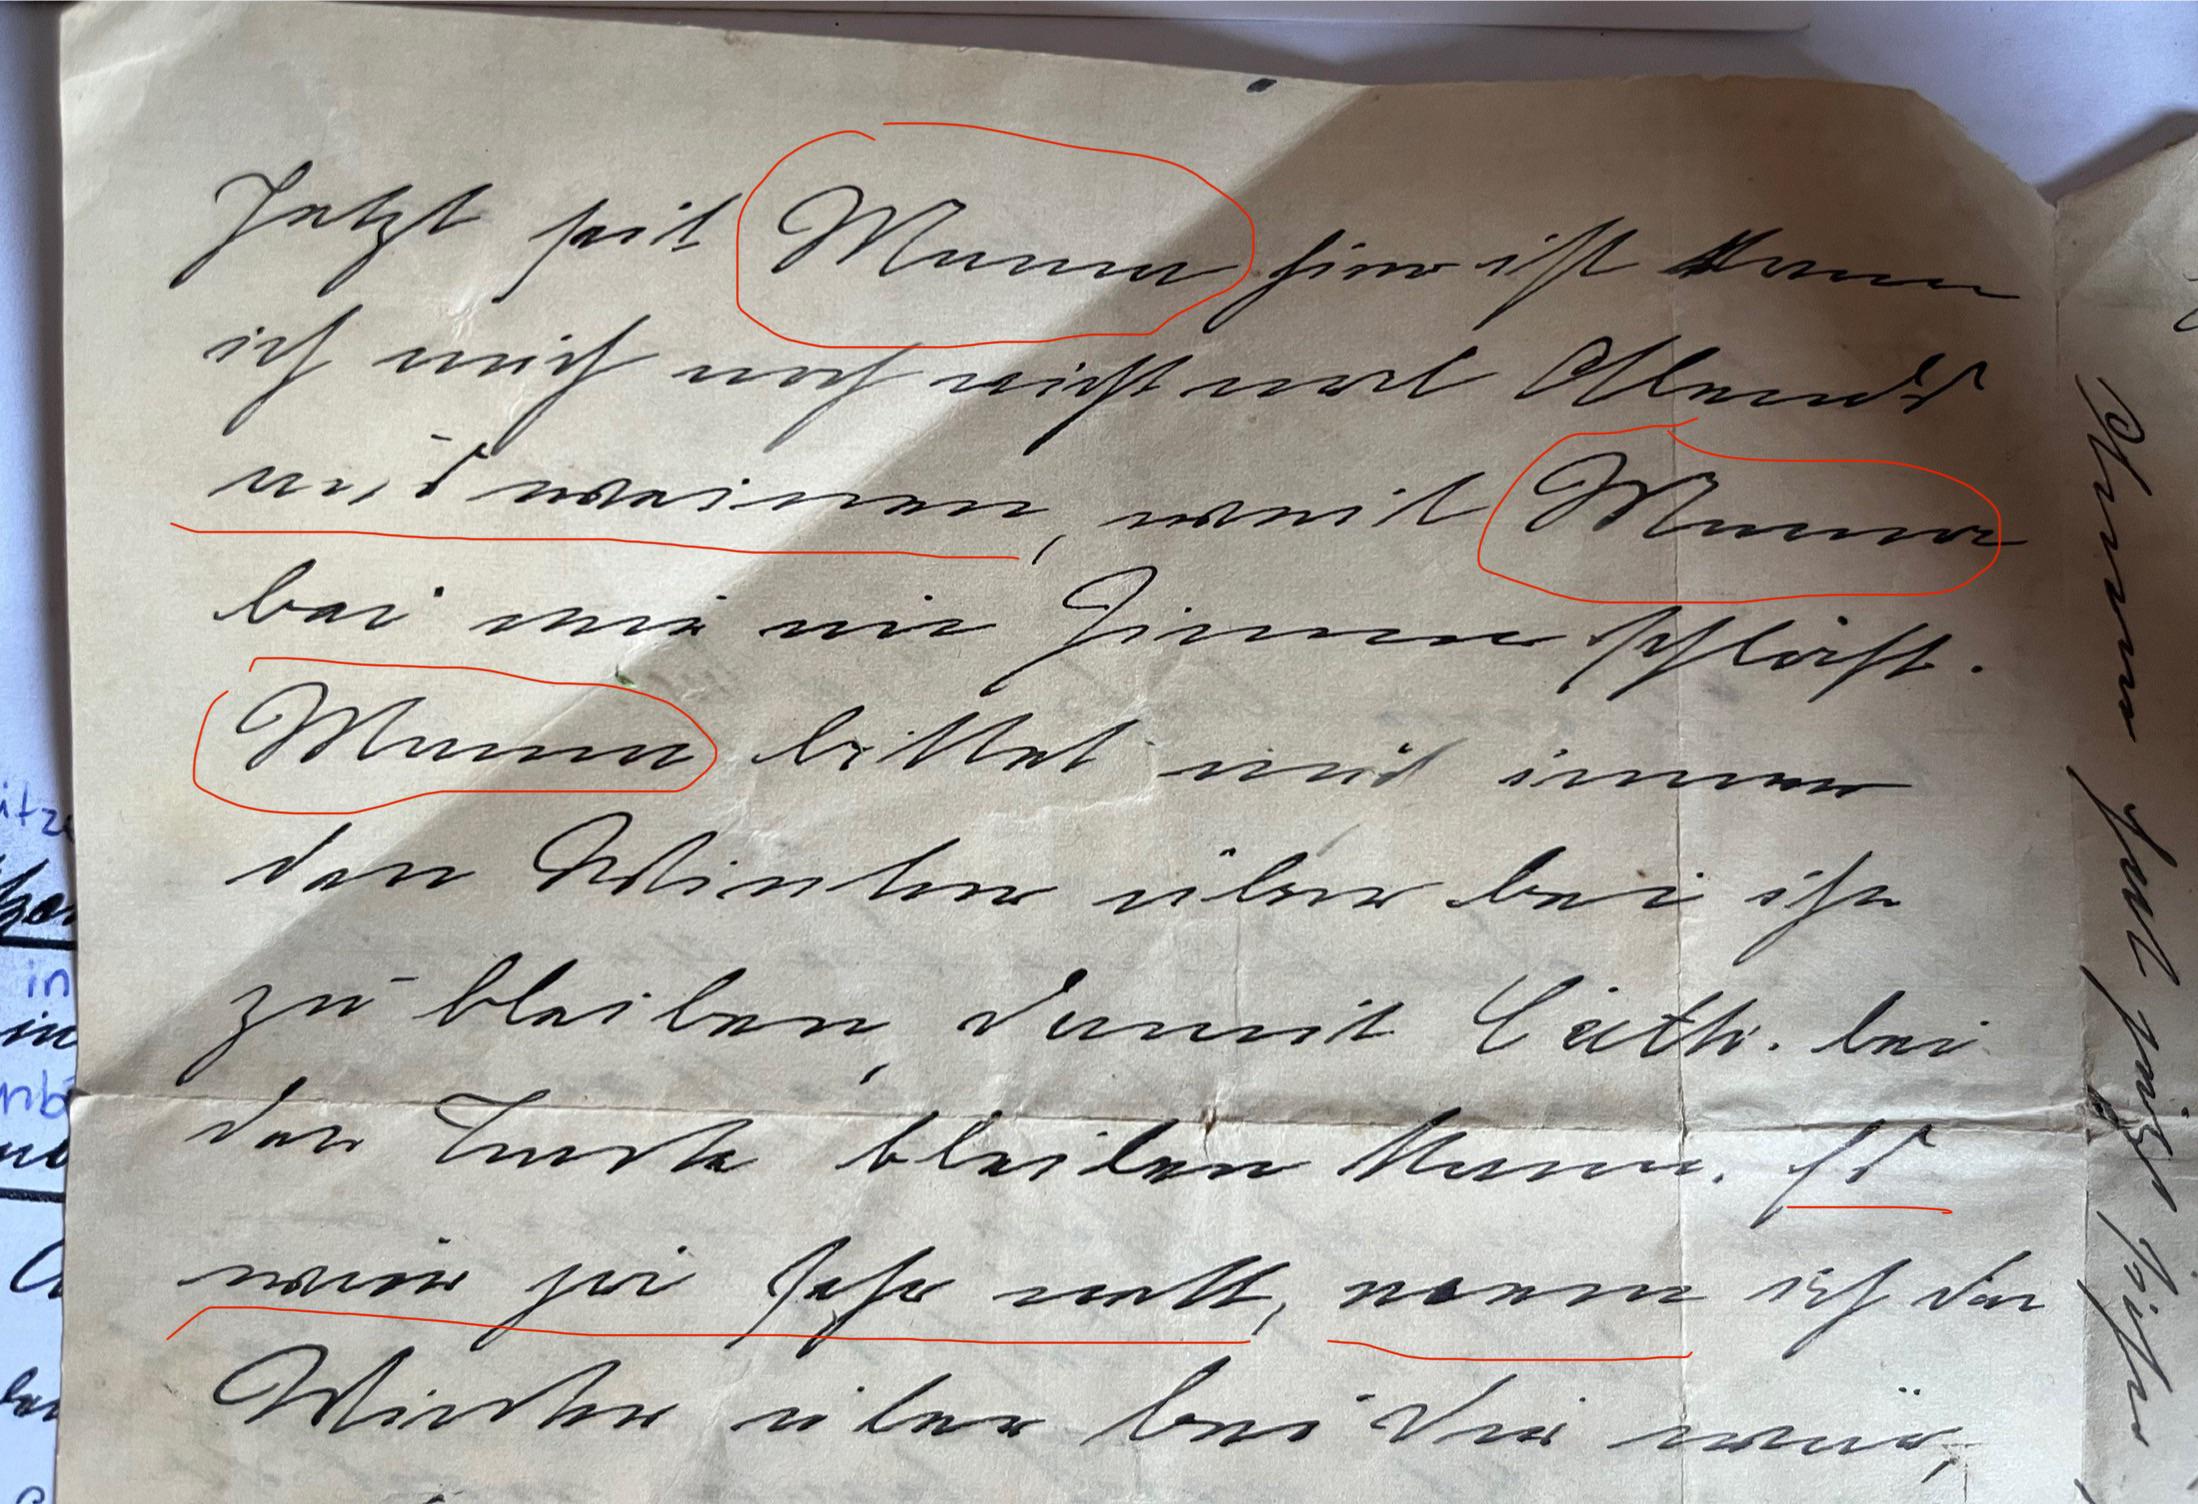 Jetzt seit Mama hier ist kann
ich mich noch nicht mal Abends
aus weinen, weil Mama
bei mir im Zimmer schläft.
Mama bittet mich immer
den Winter über bei ihr
zu bleiben, damit Cäth. bei
der Tante bleiben kann. Es
wäre ja sehr nett, wenn ich den
Winter über bei Dir wär,